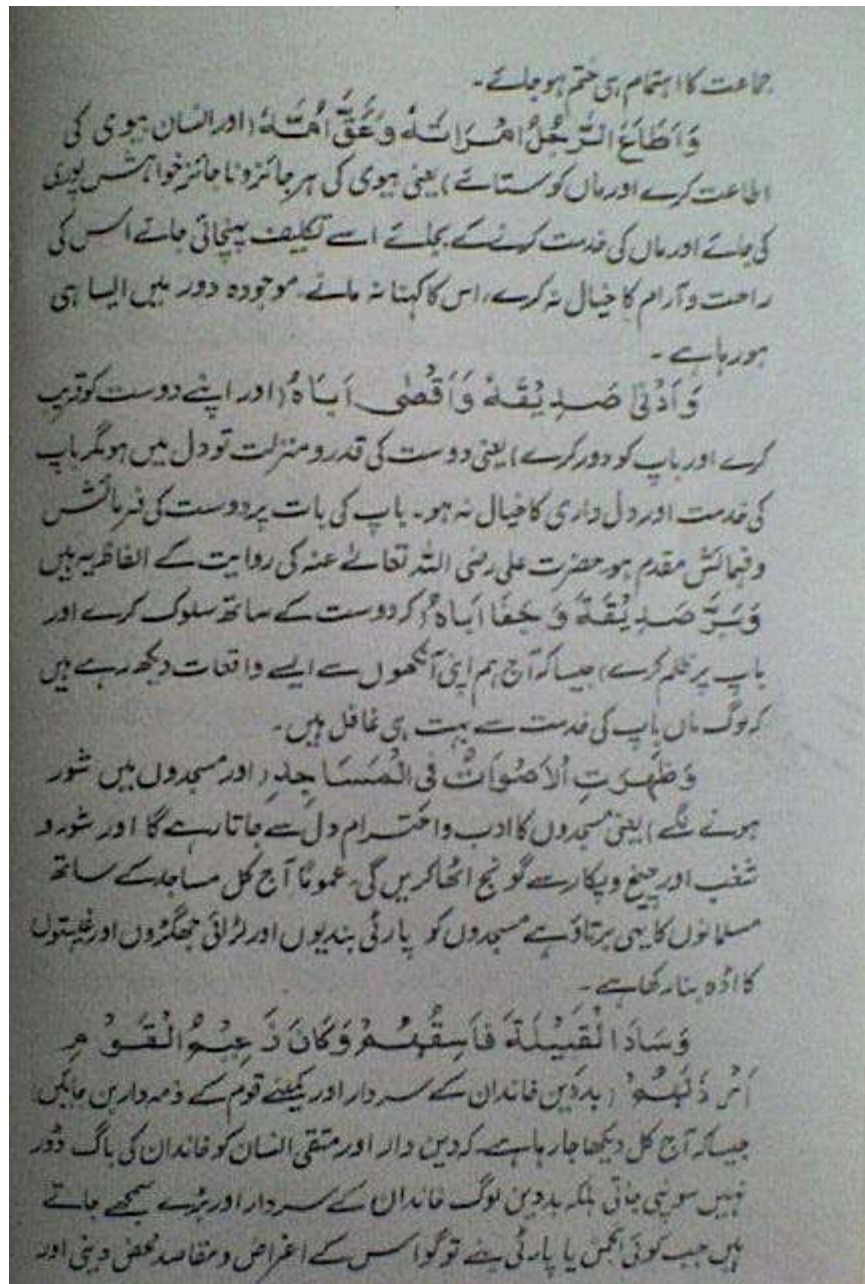 جماعت کا اہتمام ہی ختم ہو جائے۔
وَاَطَاعَ الرَّجُلُ امْرَاَتَهٗ وَعَقَّ اُمَّهٗ (اور انسان بیوی کی
اطاعت کرے اور ماں کو ستائے) یعنی بیوی کی ہر جائز و ناجائز خواہش پوری
کی جائے اور ماں کی خدمت کرنے کے بجائے اسے تکلیف پہنچائی جائے اس کی
راحت و آرام کا خیال نہ کرے، اس کا کہنا نہ مانے۔ موجودہ دور میں ایسا ہی
ہو رہا ہے۔
وَاَدْنٰى صَدِيْقَهٗ وَاَقْصٰى اَبَاهُ (اور اپنے دوست کو قریب
کرے اور باپ کو دور کرے) یعنی دوست کی قدر و منزلت تو دل میں ہو مگر باپ
کی خدمت اور دل داری کا خیال نہ ہو۔ باپ کی بات پر دوست کی فرمائش
و فہمائش مقدم ہو۔ حضرت علی رضی اللہ تعالےٰ عنہ کی روایت کے الفاظ یہ ہیں
وَبَرَّ صَدِيْقَهٗ وَجَفَا اَبَاهُ (کہ دوست کے ساتھ سلوک کرے اور
باپ پر ظلم کرے) جیسا کہ آج ہم اپنی آنکھوں سے ایسے واقعات دیکھ رہے ہیں
کہ لوگ ماں باپ کی خدمت سے بہت ہی غافل ہیں۔
وَظَهَرَتِ الْاَصْوَاتُ فِى الْمَسَاجِدِ (اور مسجدوں میں شور
ہونے لگے) یعنی مسجدوں کا ادب و احترام دل سے جاتا رہے گا اور شور و
شغب اور چیخ و پکار سے گونج اٹھا کریں گی۔ عموماً آج کل مساجد کے ساتھ
مسلمانوں کا یہی برتاؤ ہے مسجدوں کو پارٹی بندیوں اور لڑائی جھگڑوں اور غیبتوں
کا اڈہ بنا رکھا ہے۔
وَسَادَ الْقَبِيْلَةَ فَاسِقُهُمْ وَكَانَ زَعِيْمُ الْقَوْمِ
اَرْذَلَهُمْ (بددین خاندان کے سردار اور کمینے قوم کے ذمہ دار بن جائیں)
جیسا کہ آج کل دیکھا جا رہا ہے کہ دین دار اور متقی انسان کو خاندان کی باگ ڈور
نہیں سونپی جاتی بلکہ بددین لوگ خاندان کے سردار اور بڑے سمجھے جاتے
ہیں جب کوئی انجمن یا پارٹی بنے تو گو اس کے اغراض و مقاصد محض دینی اور